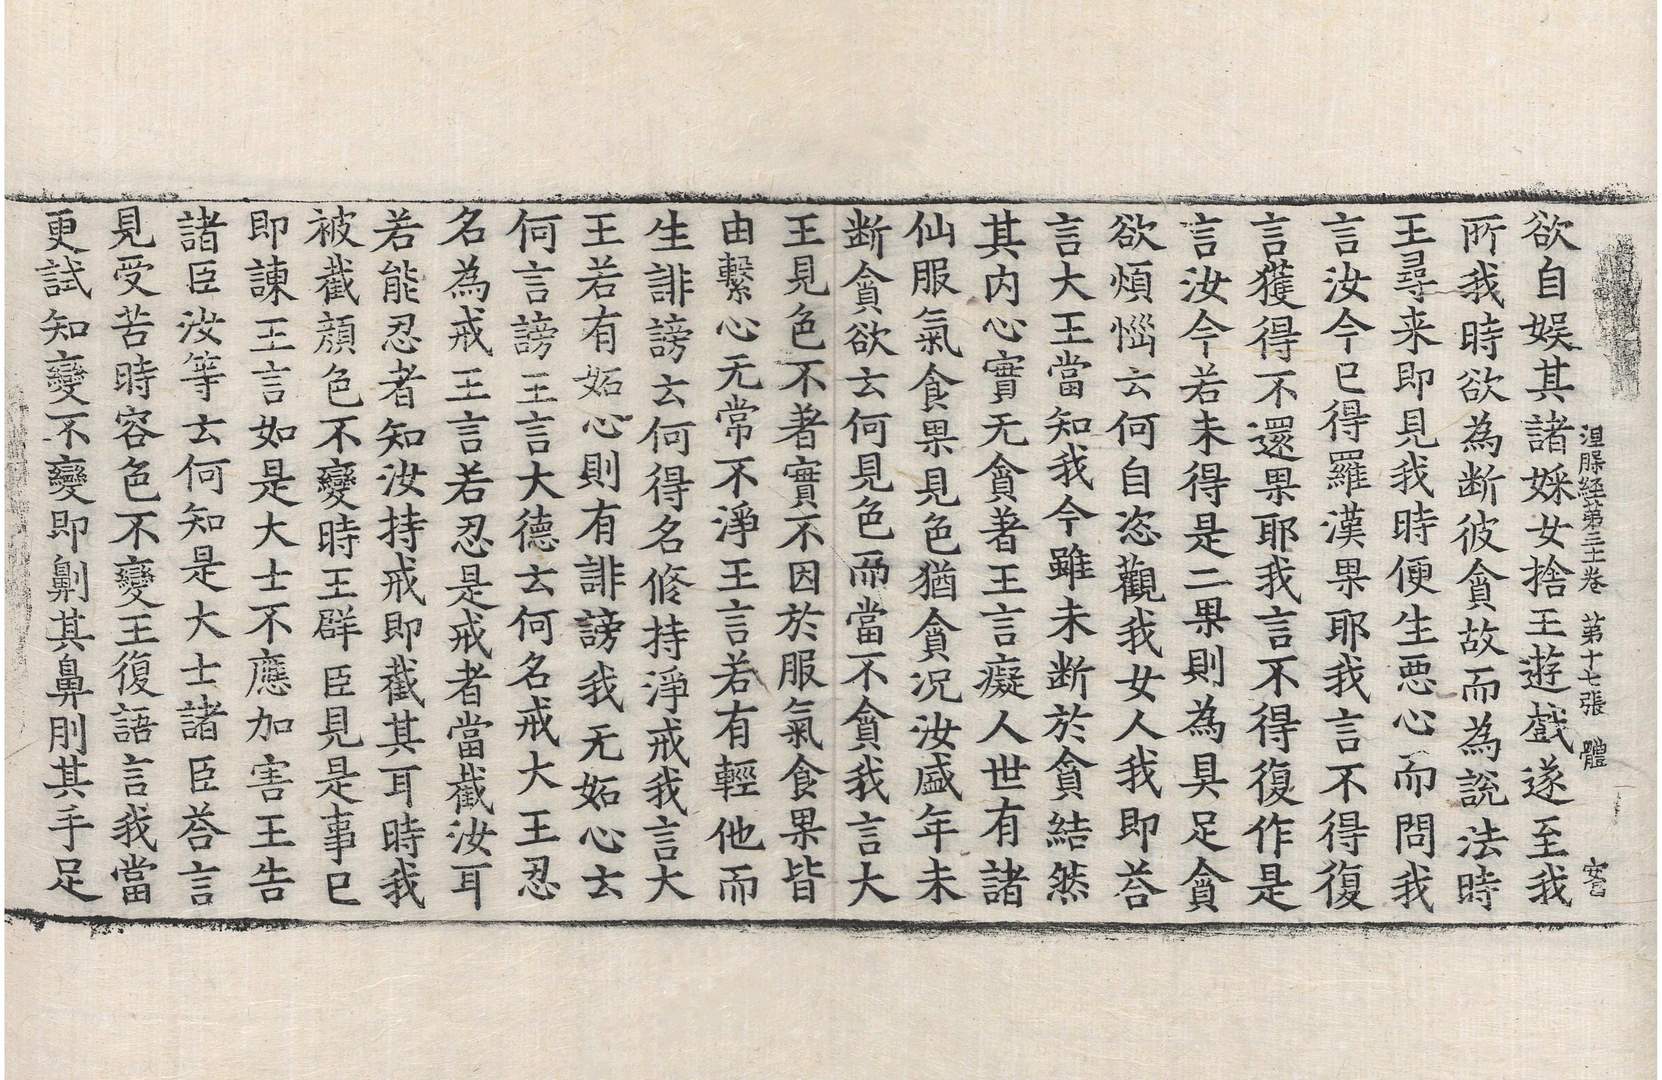 涅槃経第三十一卷 第十七張 體
欲自娛其諸婇女捨王遊戲遂至我
所我時欲為断彼貪故而為說法時
王尋来即見我時便生悪心而問我
言汝今已得羅漢果耶我言不得復
言獲得不還果耶我言不得復作是
言汝今若未得是二果則為具足貪
欲煩惱云何自恣觀我女人我即荅
言大王當知我今雖未断於貪結然
其内心實无貪著王言癡人世有諸
仙服氣食果見色猶貪况汝盛年未
断貪欲云何見色而當不貪我言大
王見色不著實不因於服氣食果皆
由繫心无常不淨王言若有輕他而
生誹謗云何得名修持淨戒我言大
王若有妬心則有誹謗我无妬心云
何言謗王言大德云何名戒大王忍
名為戒王言若忍是戒者當截汝耳
若能忍者知汝持戒即截其耳時我
被截顔色不變時王群臣見是事已
即諫王言如是大士不應加害王告
諸臣汝等云何知是大士諸臣荅言
見受苦時容色不變王復語言我當
更試知變不變即劓其鼻刖其手足